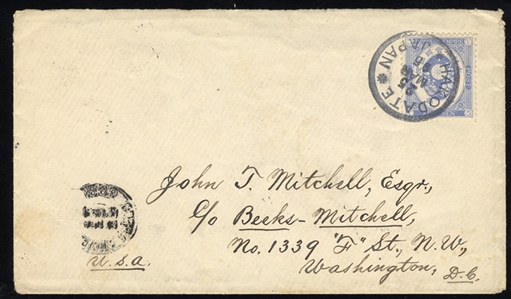 HAKODATE
JAPAN
John T. Mitchell, Esqr.,
c/o Beeks-Mitchell,
No. 1339 "F" St., N.W,
Washington, D.C.
U.S.A.